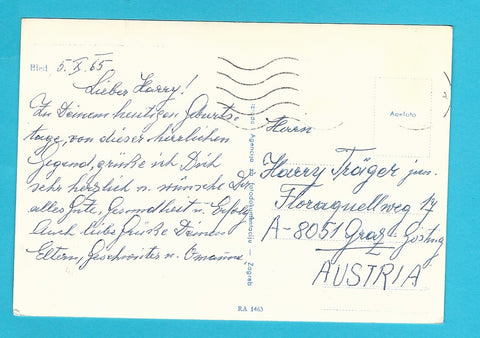 Bled, 5. X. 65
Lieber Harry!
Zu Deinem heutigen Geburts-
tage, von dieser herrlichen
Gegend, grüße ich Dich
sehr herzlich u. wünsche Dir
alles Gute, Gesundheit u. Erfolg
Auch liebe Grüße Deinen
Eltern, Geschwister u. Omama,
Agencija za fotodokumentaciju - Zagreb
Agefoto
Herrn
Harry Träger jun.
Floraquellweg 17
A-8051 Graz-Gösting
AUSTRIA
RA 1463